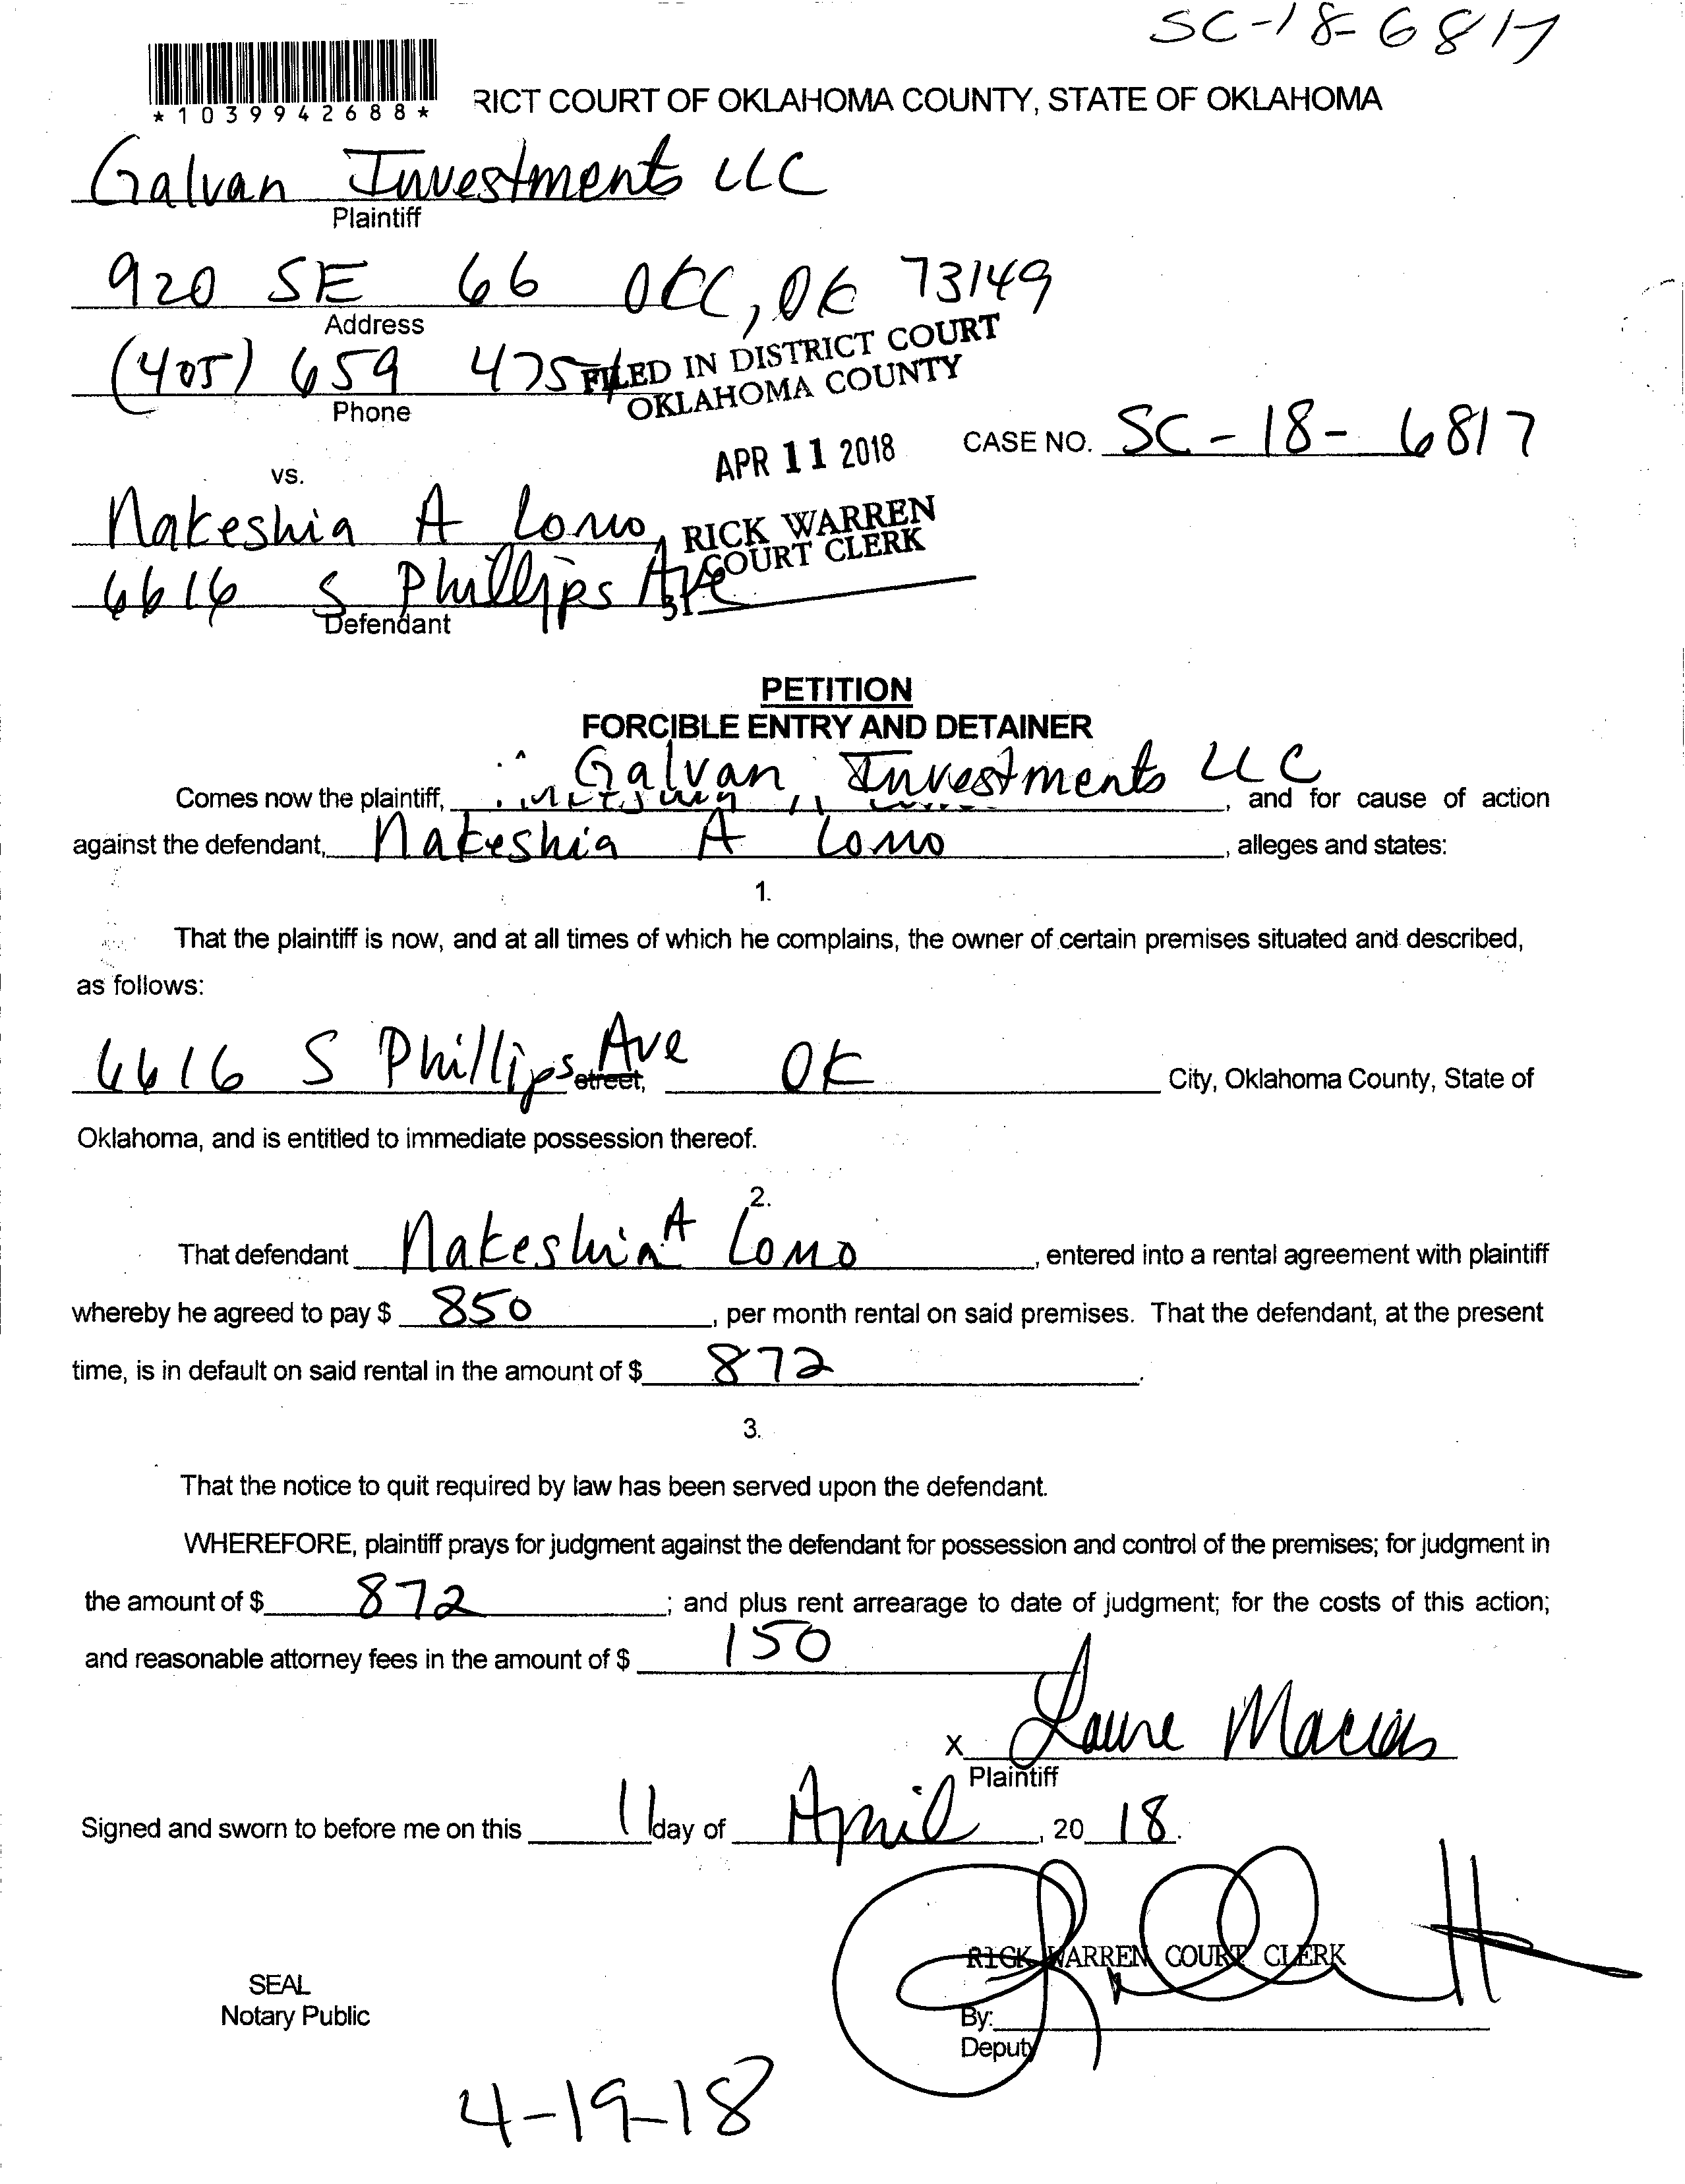 SC-18-6817
*1039942688*
RICT COURT OF OKLAHOMA COUNTY, STATE OF OKLAHOMA
Galvan Investments LLC
Plaintiff
920 SE 66 OKC, OK 73149
Address
(405) 659 4754
Phone
FILED IN DISTRICT COURT
OKLAHOMA COUNTY
APR 11 2018
RICK WARREN
COURT CLERK
CASE NO. SC-18-6817
vs.
Nakeshia A Lomo
6616 S Phillips Ave
Defendant
PETITION
FORCIBLE ENTRY AND DETAINER
Comes now the plaintiff, Galvan Investments LLC, and for cause of action
against the defendant, Nakeshia A Lomo, alleges and states:
1.
That the plaintiff is now, and at all times of which he complains, the owner of certain premises situated and described,
as follows:
6616 S Phillips Ave street, OK City, Oklahoma County, State of
Oklahoma, and is entitled to immediate possession thereof.
2.
That defendant Nakeshia A Lomo, entered into a rental agreement with plaintiff
whereby he agreed to pay $ 850, per month rental on said premises. That the defendant, at the present
time, is in default on said rental in the amount of $ 872.
3.
That the notice to quit required by law has been served upon the defendant.
WHEREFORE, plaintiff prays for judgment against the defendant for possession and control of the premises; for judgment in
the amount of $ 872; and plus rent arrearage to date of judgment; for the costs of this action;
and reasonable attorney fees in the amount of $ 150
X Macias
Plaintiff
Signed and sworn to before me on this 11 day of April, 20 18.
RICK WARREN COURT CLERK
SEAL
Notary Public
By:
Deputy
4-19-18